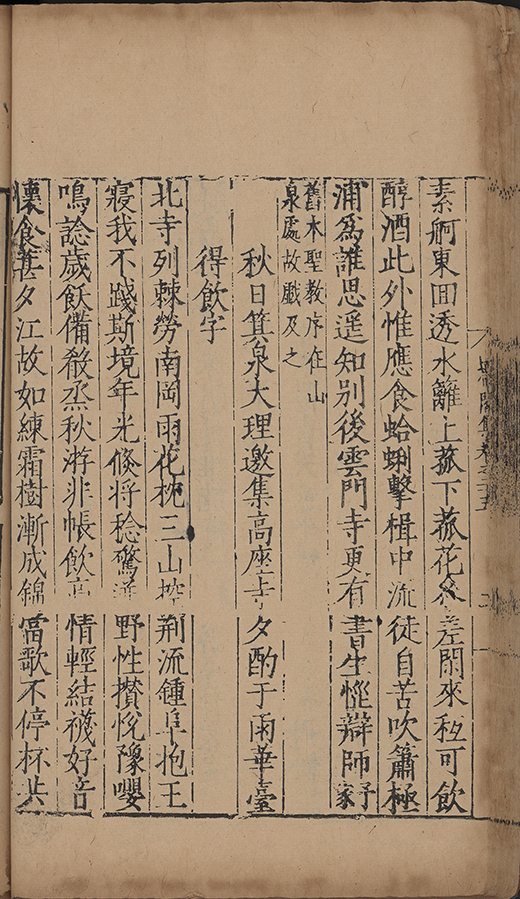 素舸東囬透水籬上菰下菰花參差閑來秪可飲
醇酒此外惟應食蛤蜊擊楫中流徒自苦吹簫極
浦爲誰思遥知别後雲門寺更有書生恠辯師
舊木聖教序在山
泉處故戱及之
秋日箕泉大理邀集高座寺夕酌于雨華臺
得飲字
北寺列棘勞南岡雨花枕三山控荆流鍾阜抱王
寢我不踐斯境年光倐將稔驚
野性攅恱豫嚶
鳴諗歳飫備殽烝秋游非帳飲高情輕結襪好音
懷食葚夕江故如練霜樹漸成錦當歌不停杯共